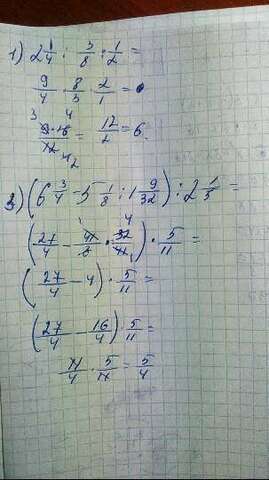 1) 2 1/4 : 3/8 : 1/2 =
9/4 · 8/3 · 2/1 =
9·16/12 = 12/2 = 6.
3) (6 3/4 - 5 1/8 : 1 9/32) : 2 1/5 =
(27/4 - 41/8 · 32/41) · 5/11 =
(27/4 - 4) · 5/11 =
(27/4 - 16/4) · 5/11 =
11/4 · 5/11 = 5/4